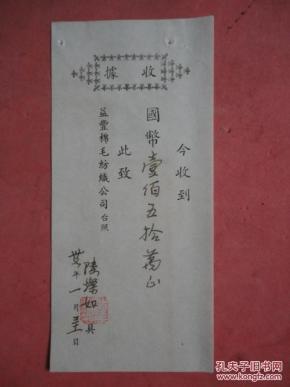 收據
今收到
國幣壹佰五拾萬正
此致
益豐棉毛紡織公司台照
陸燦如 具
卅年一月 日
孔夫子旧书网